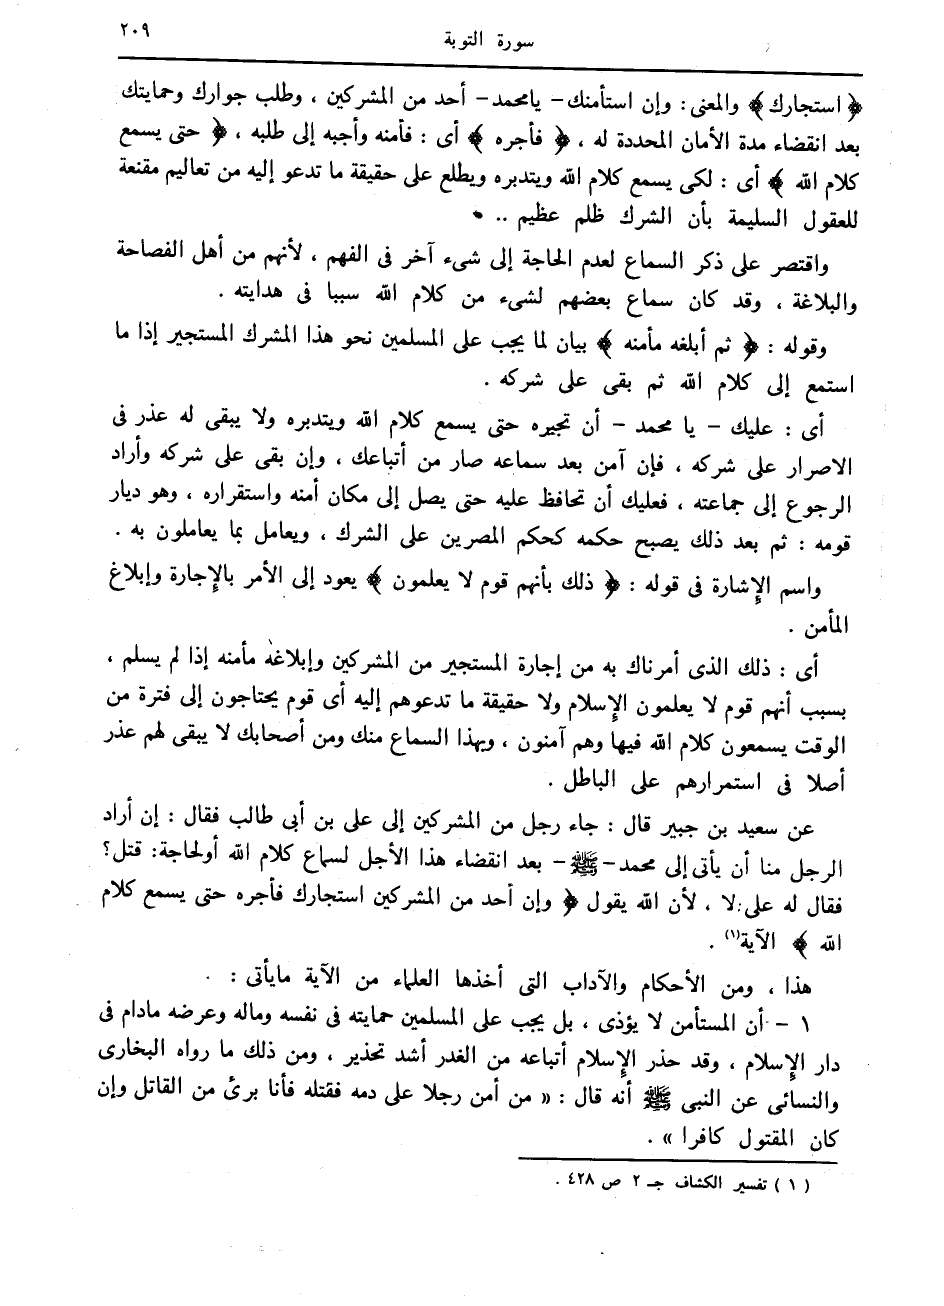 سورة التوبة ٢٠٩
﴿ استجارك ﴾ والمعنى : وإن استأمنك - يامحمد - أحد من المشركين ، وطلب جوارك وحمايتك
بعد انقضاء مدة الأمان المحددة له ، ﴿ فأجره ﴾ أى : فأمنه وأجبه إلى طلبه ، ﴿ حتى يسمع
كلام الله ﴾ أى : لكى يسمع كلام الله ويتدبره ويطلع على حقيقة ما تدعو إليه من تعاليم مقنعة
للعقول السليمة بأن الشرك ظلم عظيم ..
واقتصر على ذكر السماع لعدم الحاجة إلى شىء آخر فى الفهم ، لأنهم من أهل الفصاحة
والبلاغة ، وقد كان سماع بعضهم لشىء من كلام الله سببا فى هدايته .
وقوله : ﴿ ثم أبلغه مأمنه ﴾ بيان لما يجب على المسلمين نحو هذا المشرك المستجير إذا ما
استمع إلى كلام الله ثم بقى على شركه .
أى : عليك - يا محمد - أن تجيره حتى يسمع كلام الله ويتدبره ولا يبقى له عذر فى
الاصرار على شركه ، فإن آمن بعد سماعه صار من أتباعك ، وإن بقى على شركه وأراد
الرجوع إلى جماعته ، فعليك أن تحافظ عليه حتى يصل إلى مكان أمنه واستقراره ، وهو ديار
قومه : ثم بعد ذلك يصبح حكمه كحكم المصرين على الشرك ، ويعامل بما يعاملون به .
واسم الإشارة فى قوله : ﴿ ذلك بأنهم قوم لا يعلمون ﴾ يعود إلى الأمر بالإجارة وإبلاغ
المأمن .
أى : ذلك الذى أمرناك به من إجارة المستجير من المشركين وإبلاغه مأمنه إذا لم يسلم ،
بسبب أنهم قوم لا يعلمون الإسلام ولا حقيقة ما تدعوهم إليه أى قوم يحتاجون إلى فترة من
الوقت يسمعون كلام الله فيها وهم آمنون ، وبهذا السماع منك ومن أصحابك لا يبقى لهم عذر
أصلا فى استمرارهم على الباطل .
عن سعيد بن جبير قال : جاء رجل من المشركين إلى على بن أبى طالب فقال : إن أراد
الرجل منا أن يأتى إلى محمد - ﷺ - بعد انقضاء هذا الأجل لسماع كلام الله أولحاجة : قتل ؟
فقال له على : لا ، لأن الله يقول ﴿ وإن أحد من المشركين استجارك فأجره حتى يسمع كلام
الله ﴾ الآية(١) .
هذا ، ومن الأحكام والآداب التى أخذها العلماء من الآية مايأتى :
١ - أن المستأمن لا يؤذى ، بل يجب على المسلمين حمايته فى نفسه وماله وعرضه مادام فى
دار الإسلام ، وقد حذر الإسلام أتباعه من الغدر أشد تحذير ، ومن ذلك ما رواه البخارى
والنسائى عن النبى ﷺ أنه قال : « من أمن رجلا على دمه فقتله فأنا برئ من القاتل وإن
كان المقتول كافرا » .
( ١ ) تفسير الكشاف جـ ٢ ص ٤٢٨ .